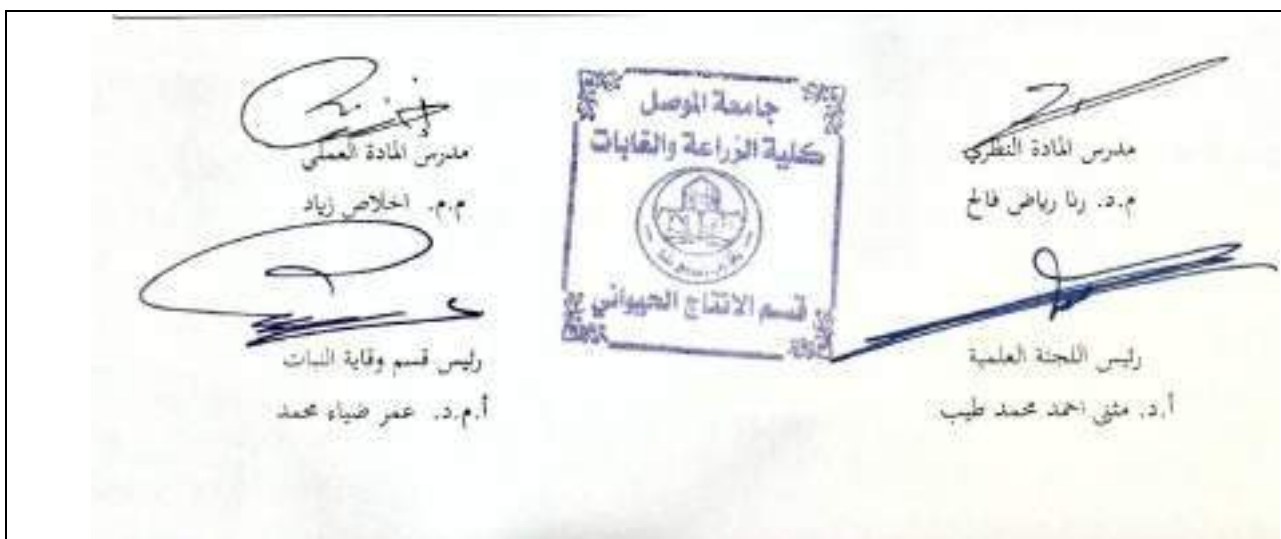 مدرس المادة النظري
م.د. رنا رياض فالح
رئيس اللجنة العلمية
أ.د. مثنى احمد محمد طيب
جامعة الموصل
كلية الزراعة والغابات
قسم الانتاج الحيواني
مدرس المادة العملي
م.م. اخلاص زياد
رئيس قسم وقاية النبات
أ.م.د. عمر ضياء محمد